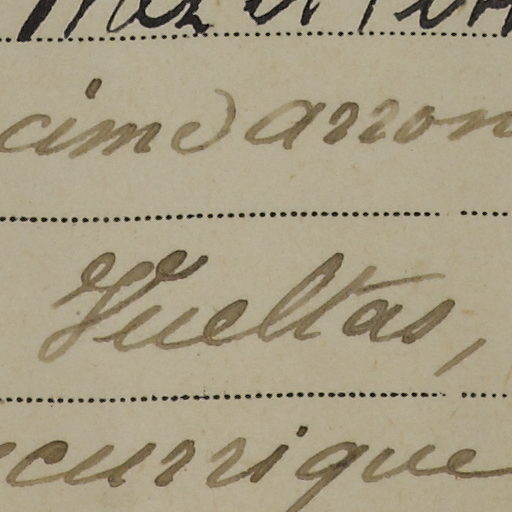 cimo arron
Vueltas,
currique